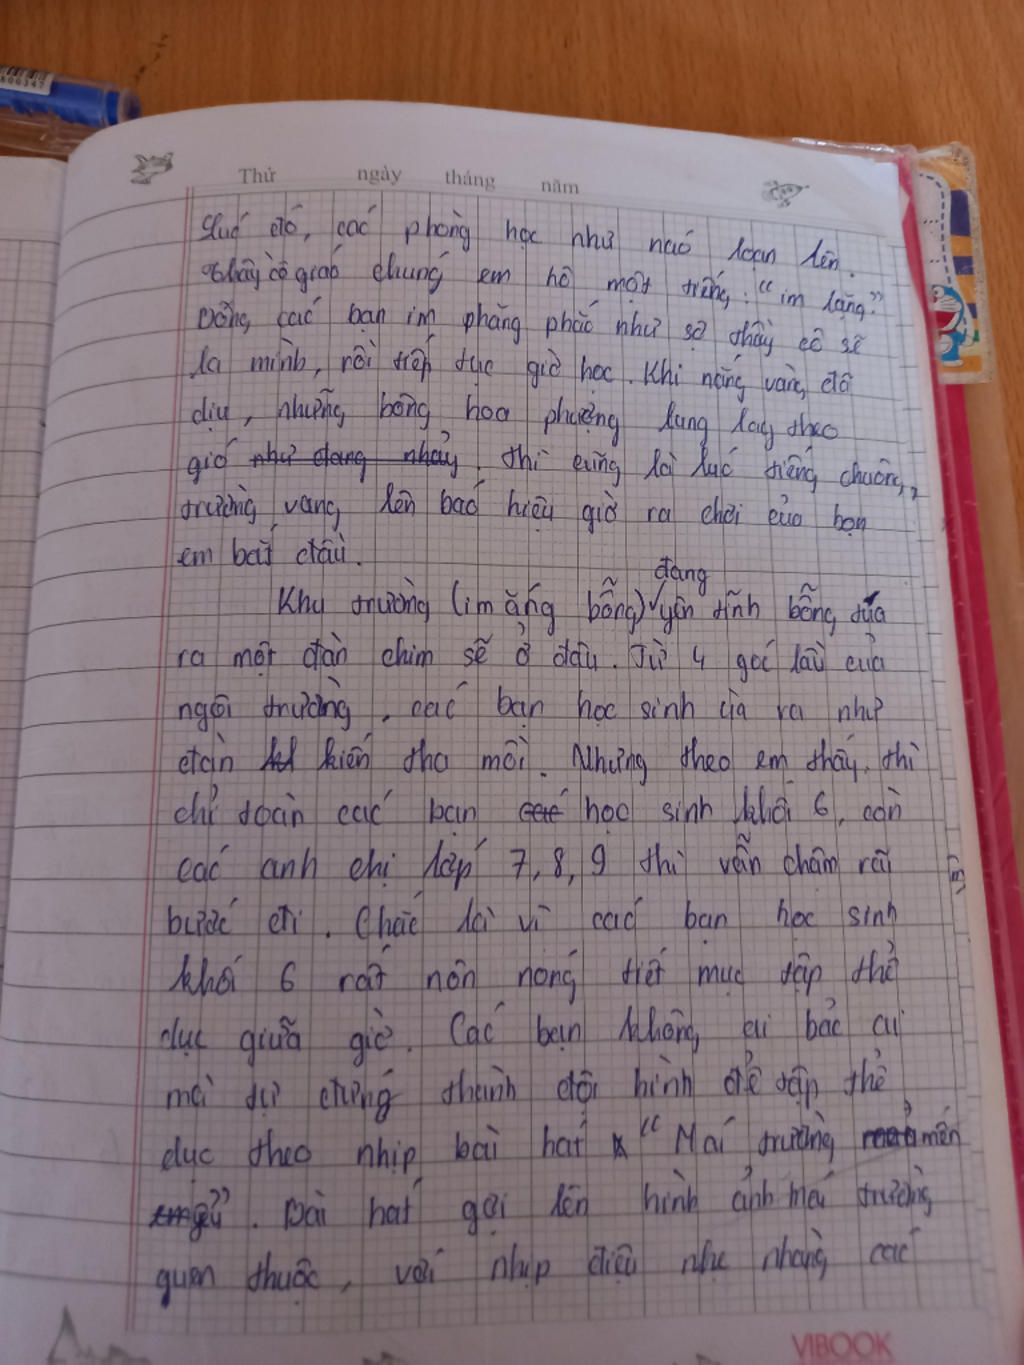 806347
Thứ ngày tháng năm
Lúc đó, các phòng học như náo loạn lên.
Thầy cô giáo chúng em hô một tiếng: "im lặng."
Bỗng các bạn im phăng phắc như sợ thầy cô sẽ
la mình, rồi tiếp tục giờ học. Khi nắng vàng đã
dịu, những bông hoa phượng lung lay theo
gió như đang nhảy. thì cũng là lúc tiếng chuông,
trường vang lên báo hiệu giờ ra chơi của bọn
em bắt đầu.
đang
Khu trường (im ắng bỗng) yên tĩnh bỗng ùa
ra một đàn chim sẽ ở đâu. Từ 4 góc lầu của
ngôi trường, các bạn học sinh ùa ra như
đàn kiến tha mồi. Nhưng theo em thấy, thì
chỉ toàn các bạn các học sinh khối 6, còn
các anh chị lớp 7, 8, 9 thì vẫn chậm rãi
bước đi. Chắc là vì các bạn học sinh
khối 6 rất nôn nóng tiết mục tập thể
dục giữa giờ. Các bạn không ai bảo ai
mà tự đứng thành đội hình để tập thể
dục theo nhịp bài hát "Mái trường mến
yêu". Bài hát gợi lên hình ảnh mái trường
quen thuộc, với nhịp điệu nhẹ nhàng các
VIBOOK